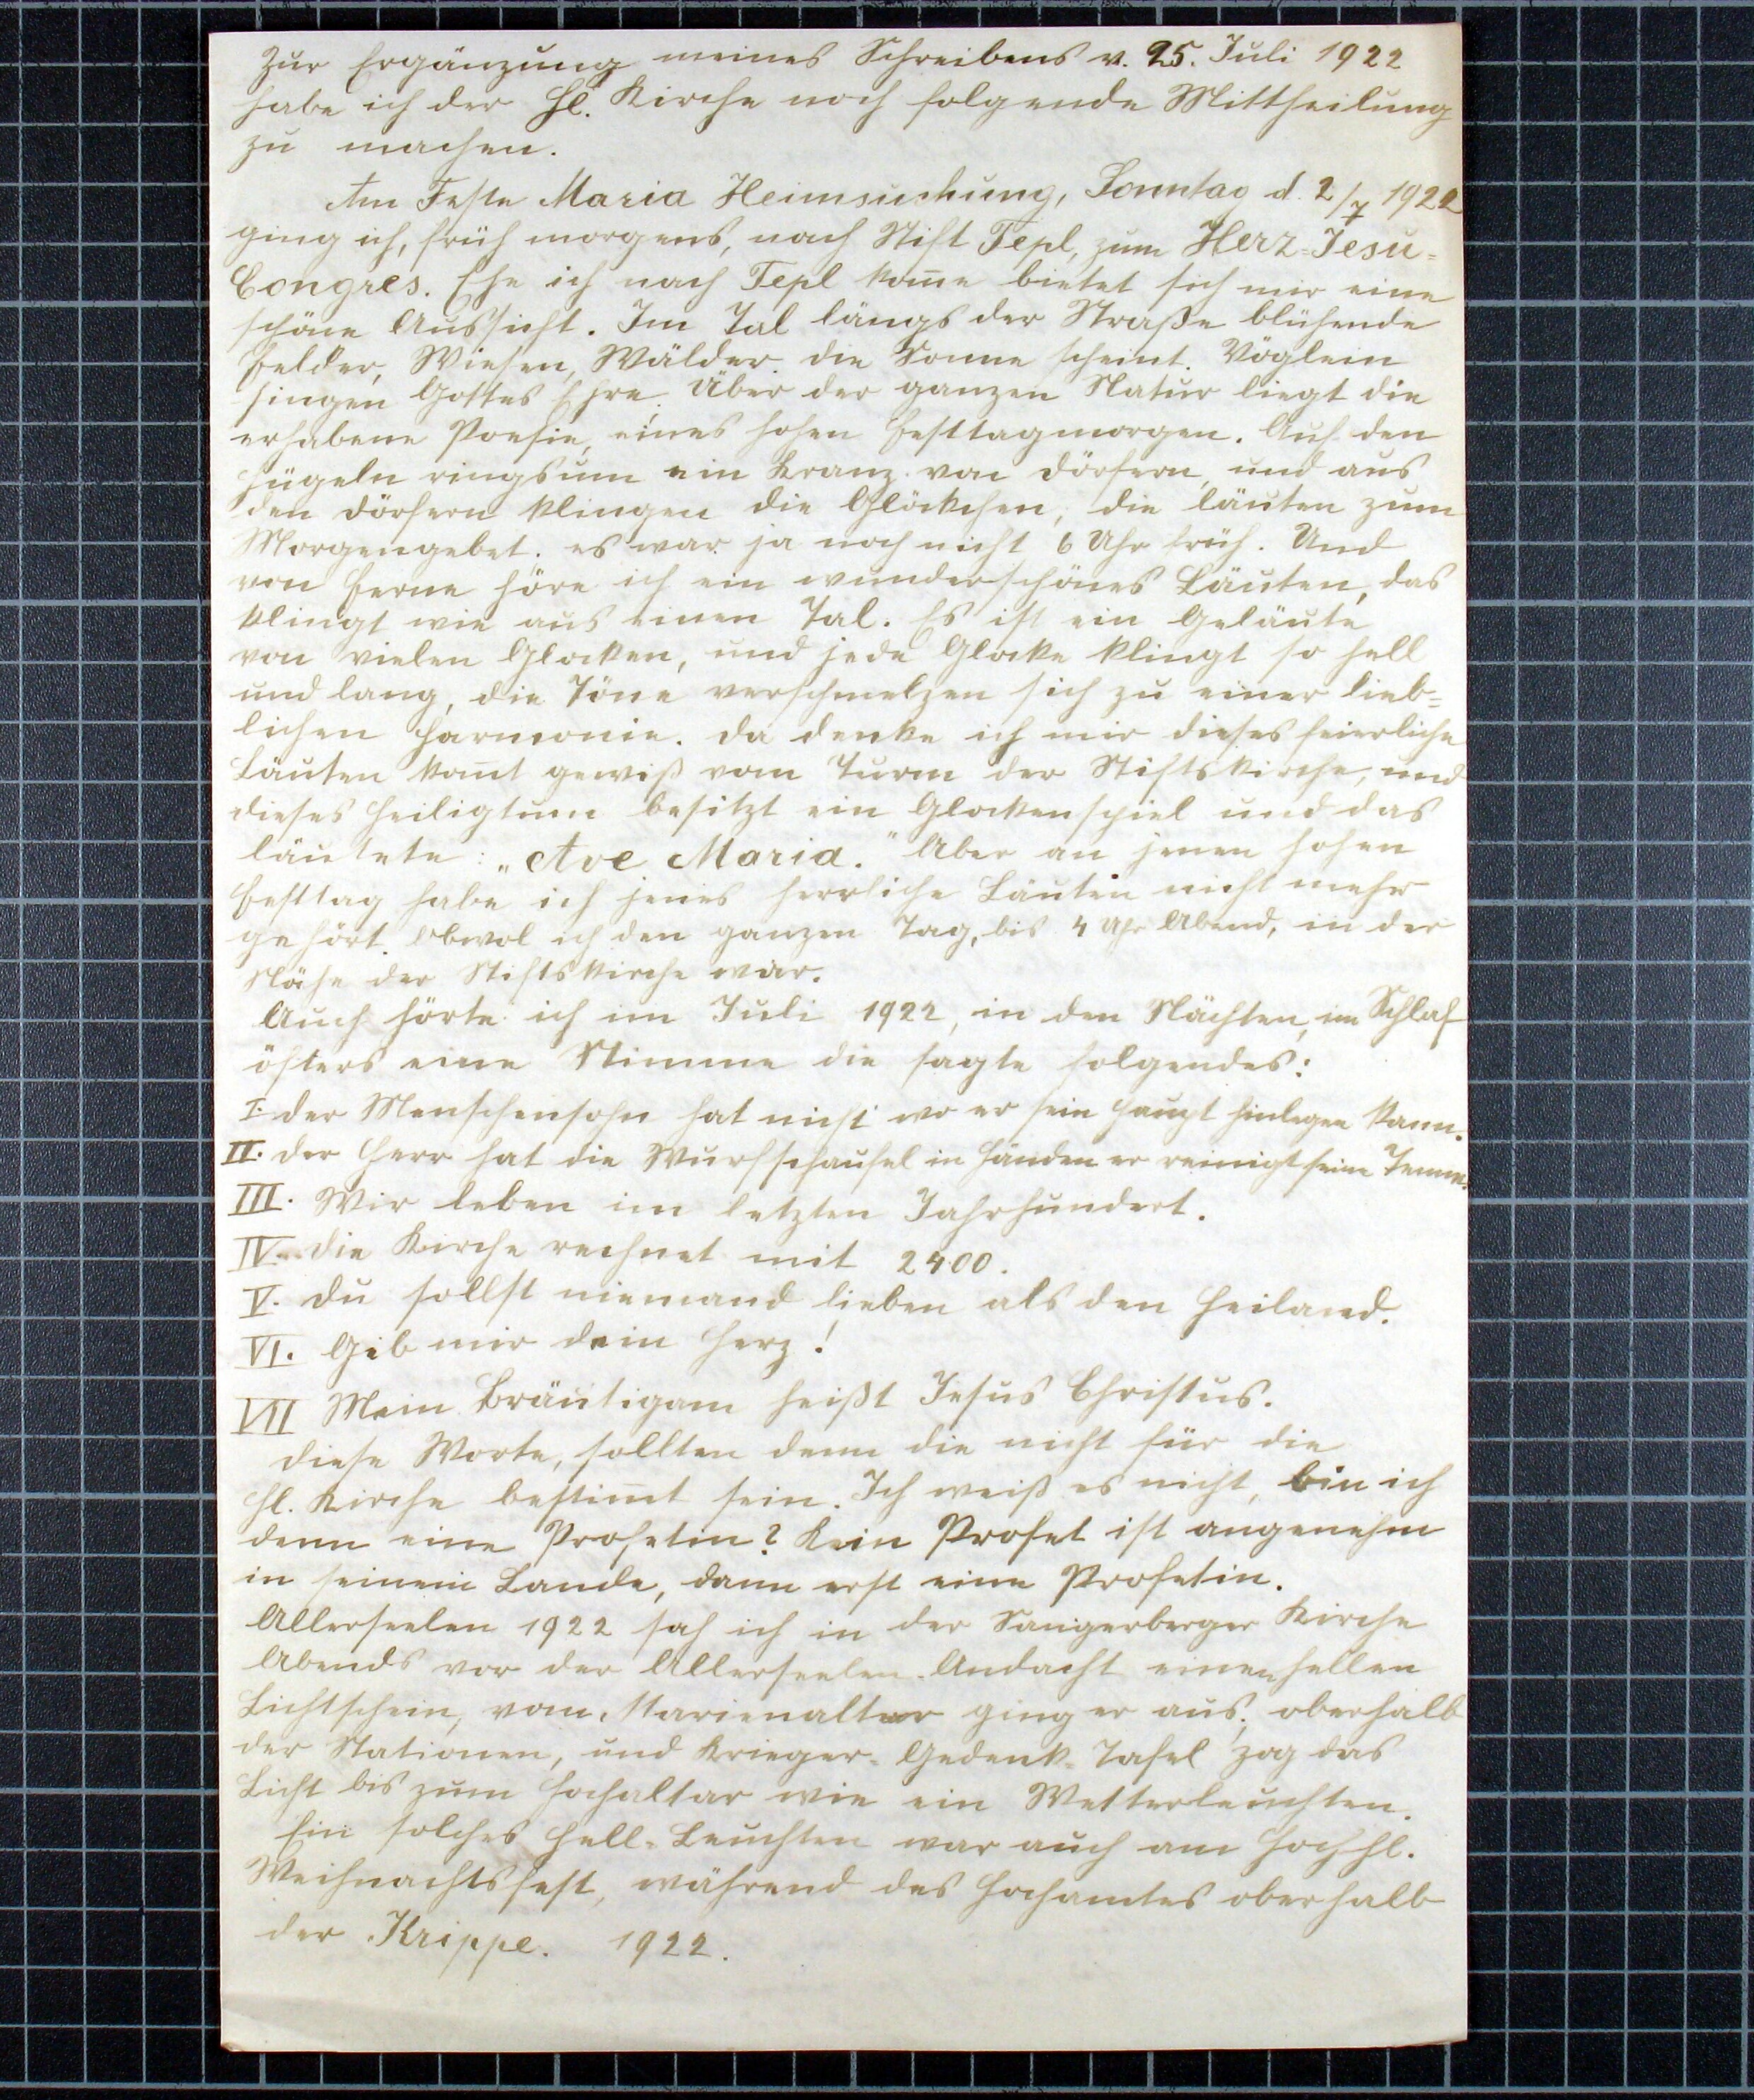 Zur Ergänzung meines Schreibens v. 25. Juli 1922
habe ich der Hl. Kirche noch folgende Mittheilung
zu machen.
Am Feste Maria Heimsuchung, Sonntag d. 2/7 1922
ging ich, früh morgens, nach Stift Tepl, zum Herz-Jesu-
Congres. Ehe ich nach Tepl kom̅e bietet sich mir eine
schöne Aussicht. Im Tal längs der Straße blühende
Felder, Wiesen, Wälder. die Sonne scheint. Vöglein
singen Gottes Ehre. Über der ganzen Natur liegt die
erhabene Poesie, eines hohen Festtagmorgen. Auf den
Hügeln ringsum ein Kranz von Dörfern, und aus
den Dörfern klingen die Glöckchen, die läuten zum
Morgengebet. es war ja noch nicht 6 Uhr früh. Und
von Ferne höre ich ein wunderschönes Läuten, das
klingt wie aus einen Tal. Es ist ein Geläute
von vielen Glocken, und jede Glocke klingt so hell
und lang, die Töne verschmelzen sich zu einer lieb-
lichen Harmonie. Da denke ich mir dieses feierliche
Läuten kom̅t gewiß vom Turm der Stiftskirche, und
dieses Heiligtum besitzt ein Glockenspiel und das
läutete: „Ave Maria." Aber an jenen hohen
Festtag habe ich jenes herrliche Läuten nicht mehr
gehört. Obwol ich den ganzen Tag, bis 4 Uhr Abend, in der
Nähe der Stiftskirche war.
Auch hörte ich im Juli 1922, in den Nächten, im Schlaf
öfters eine Stimme die sagte folgendes:
I. Der Menschensohn hat nicht wo er sein Haupt hinlegen kann.
II. Der Herr hat die Wurfschaufel in Händen er reinigt seine Tenne.
III. Wir leben im letzten Jahrhundert.
IV. Die Kirche rechnet mit 2400.
V. Du sollst niemand lieben als den Heiland.
VI. Gib mir dein Herz!
VII Mein Bräutigam heißt Jesus Christus.
Diese Worte, sollten denn die nicht für die
Hl. Kirche bestim̅t sein. Ich weiß es nicht, bin ich
denn eine Profetin? Kein Profet ist angenehm
in seinem Lande, dann erst eine Profetin.
Allerseelen 1922 sah ich in der Sangerberger Kirche
Abends vor der Allerseelen-Andacht einen hellen
Lichtschein, vom Marienaltar ging er aus, oberhalb
der Stationen, und Krieger-Gedenk-Tafel zog das
Licht bis zum Hochaltar wie ein Wetterleuchten.
Ein solches Hell-Leuchten war auch am Hochhl.
Weihnachtsfest, während des Hochamtes oberhalb
der Krippe. 1922.